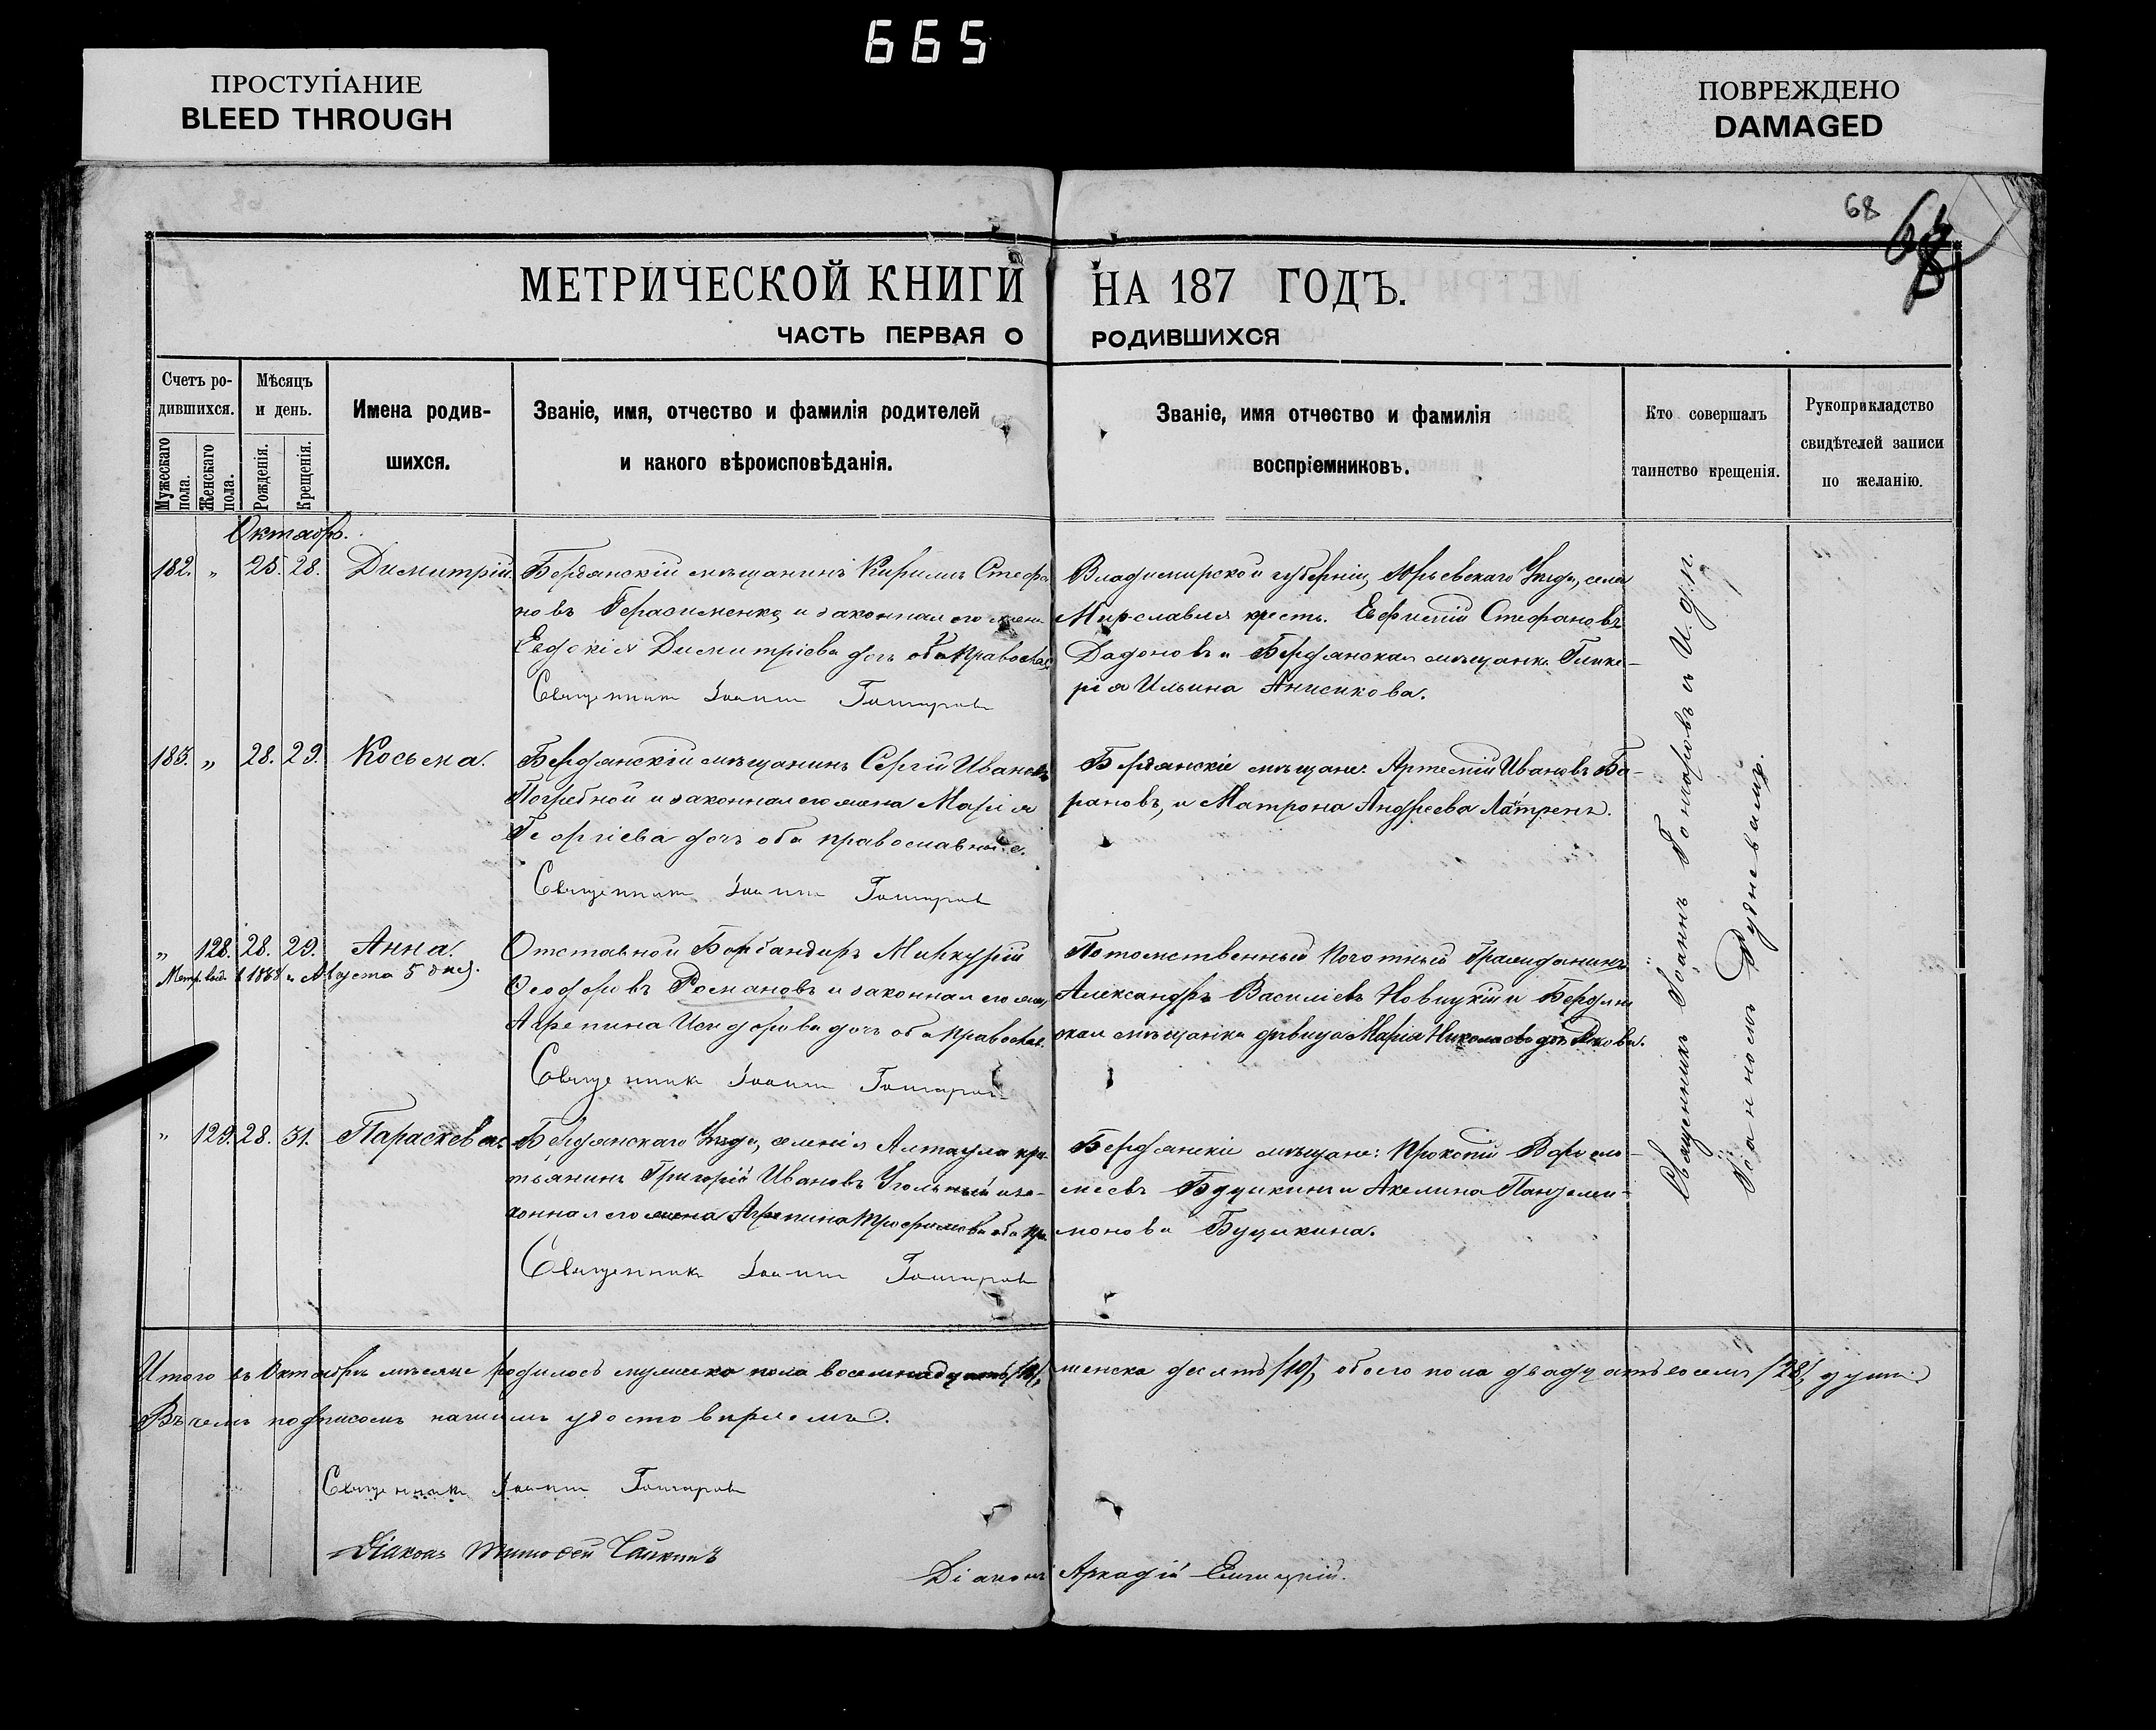 665
ПРОСТУПАНИЕ
BLEED THROUGH
ПОВРЕЖДЕНО
DAMAGED
68
68
МЕТРИЧЕСКОЙ КНИГИ НА 187 ГОДЪ.
ЧАСТЬ ПЕРВАЯ О РОДИВШИХСЯ
Счетъ ро-
дившихся.
Мужескаго пола.
Женскаго пола.
Мѣсяцъ
и день.
Рожденія.
Крещенія.
Имена родив-
шихся.
Званіе, имя, отчество и фамилія родителей
и какого вѣроисповѣданія.
Званіе, имя отчество и фамилія
воспріемниковъ.
Кто совершалъ
таинство крещенія.
Рукоприкладство
свидѣтелей записи
по желанію.
Октябрь.
182. " 25. 28. Димитрій.
Бердянскій мѣщанинъ Кирилъ Стефа
новъ Герасименко, и законная его жена
Евдокія Димитріева дочь оба православ.
Священникъ Іоаннъ Гончаровъ
Владимирской губерніи, Юрьевскаго Уѣзда, села
Мирславля крест. Евфимій Стефановъ
Дадоновъ и Бердянская мѣщанка Глике-
рія Ильина Анисикова.
183. " 28. 29. Косьма.
Бердянскій мѣщанинъ Сергій Ивановъ
Погребной и законная его жена Марія
Георгіева дочь оба православные.
Священникъ Іоаннъ Гончаровъ
Бердянскіе мѣщане: Артемій Ивановъ Ба-
рановъ, и Матрона Андреева
" 128. 28. 29. Анна.
Метр. выд. 1888 г. Августа 5 дня.
Отставной Бомбандиръ Миркурій
Ѳеодоровъ Романовъ и законная его жена
Агрепина Исидорова дочь оба православ.
Священникъ Іоаннъ Гончаровъ
Потомственный Почотный Гражданинъ
Александръ Василіевъ Новицкій и Бердян
ская мѣщанка дѣвица Марія Николаева дочь
" 129. 28. 31. Параскева.
Бердянскаго Уѣзда, селенія Алтаула кре-
тьянинъ Григорій Ивановъ Угольный и за-
конная его жена Агрепина Трофимова оба пра.
Священникъ Іоаннъ Гончаровъ
Бердянскіе мѣщане: Прокопій Варѳоло-
меевъ Будукинъ и Акелина Пантелеи-
монова
Священникъ Іоаннъ Гончаровъ съ И. д. п.
Діакономъ
Итого въ Октябрѣ мѣсяце родилось мужеска пола восемнадцать /18/, женска десять /10/, обоего пола двадцать восемь /28/ душъ.
Въ чемъ подписомъ нашимъ удостовѣряемъ.
Священникъ Іоаннъ Гончаровъ
Діаконъ Тимоѳей
Діаконъ Аркадій